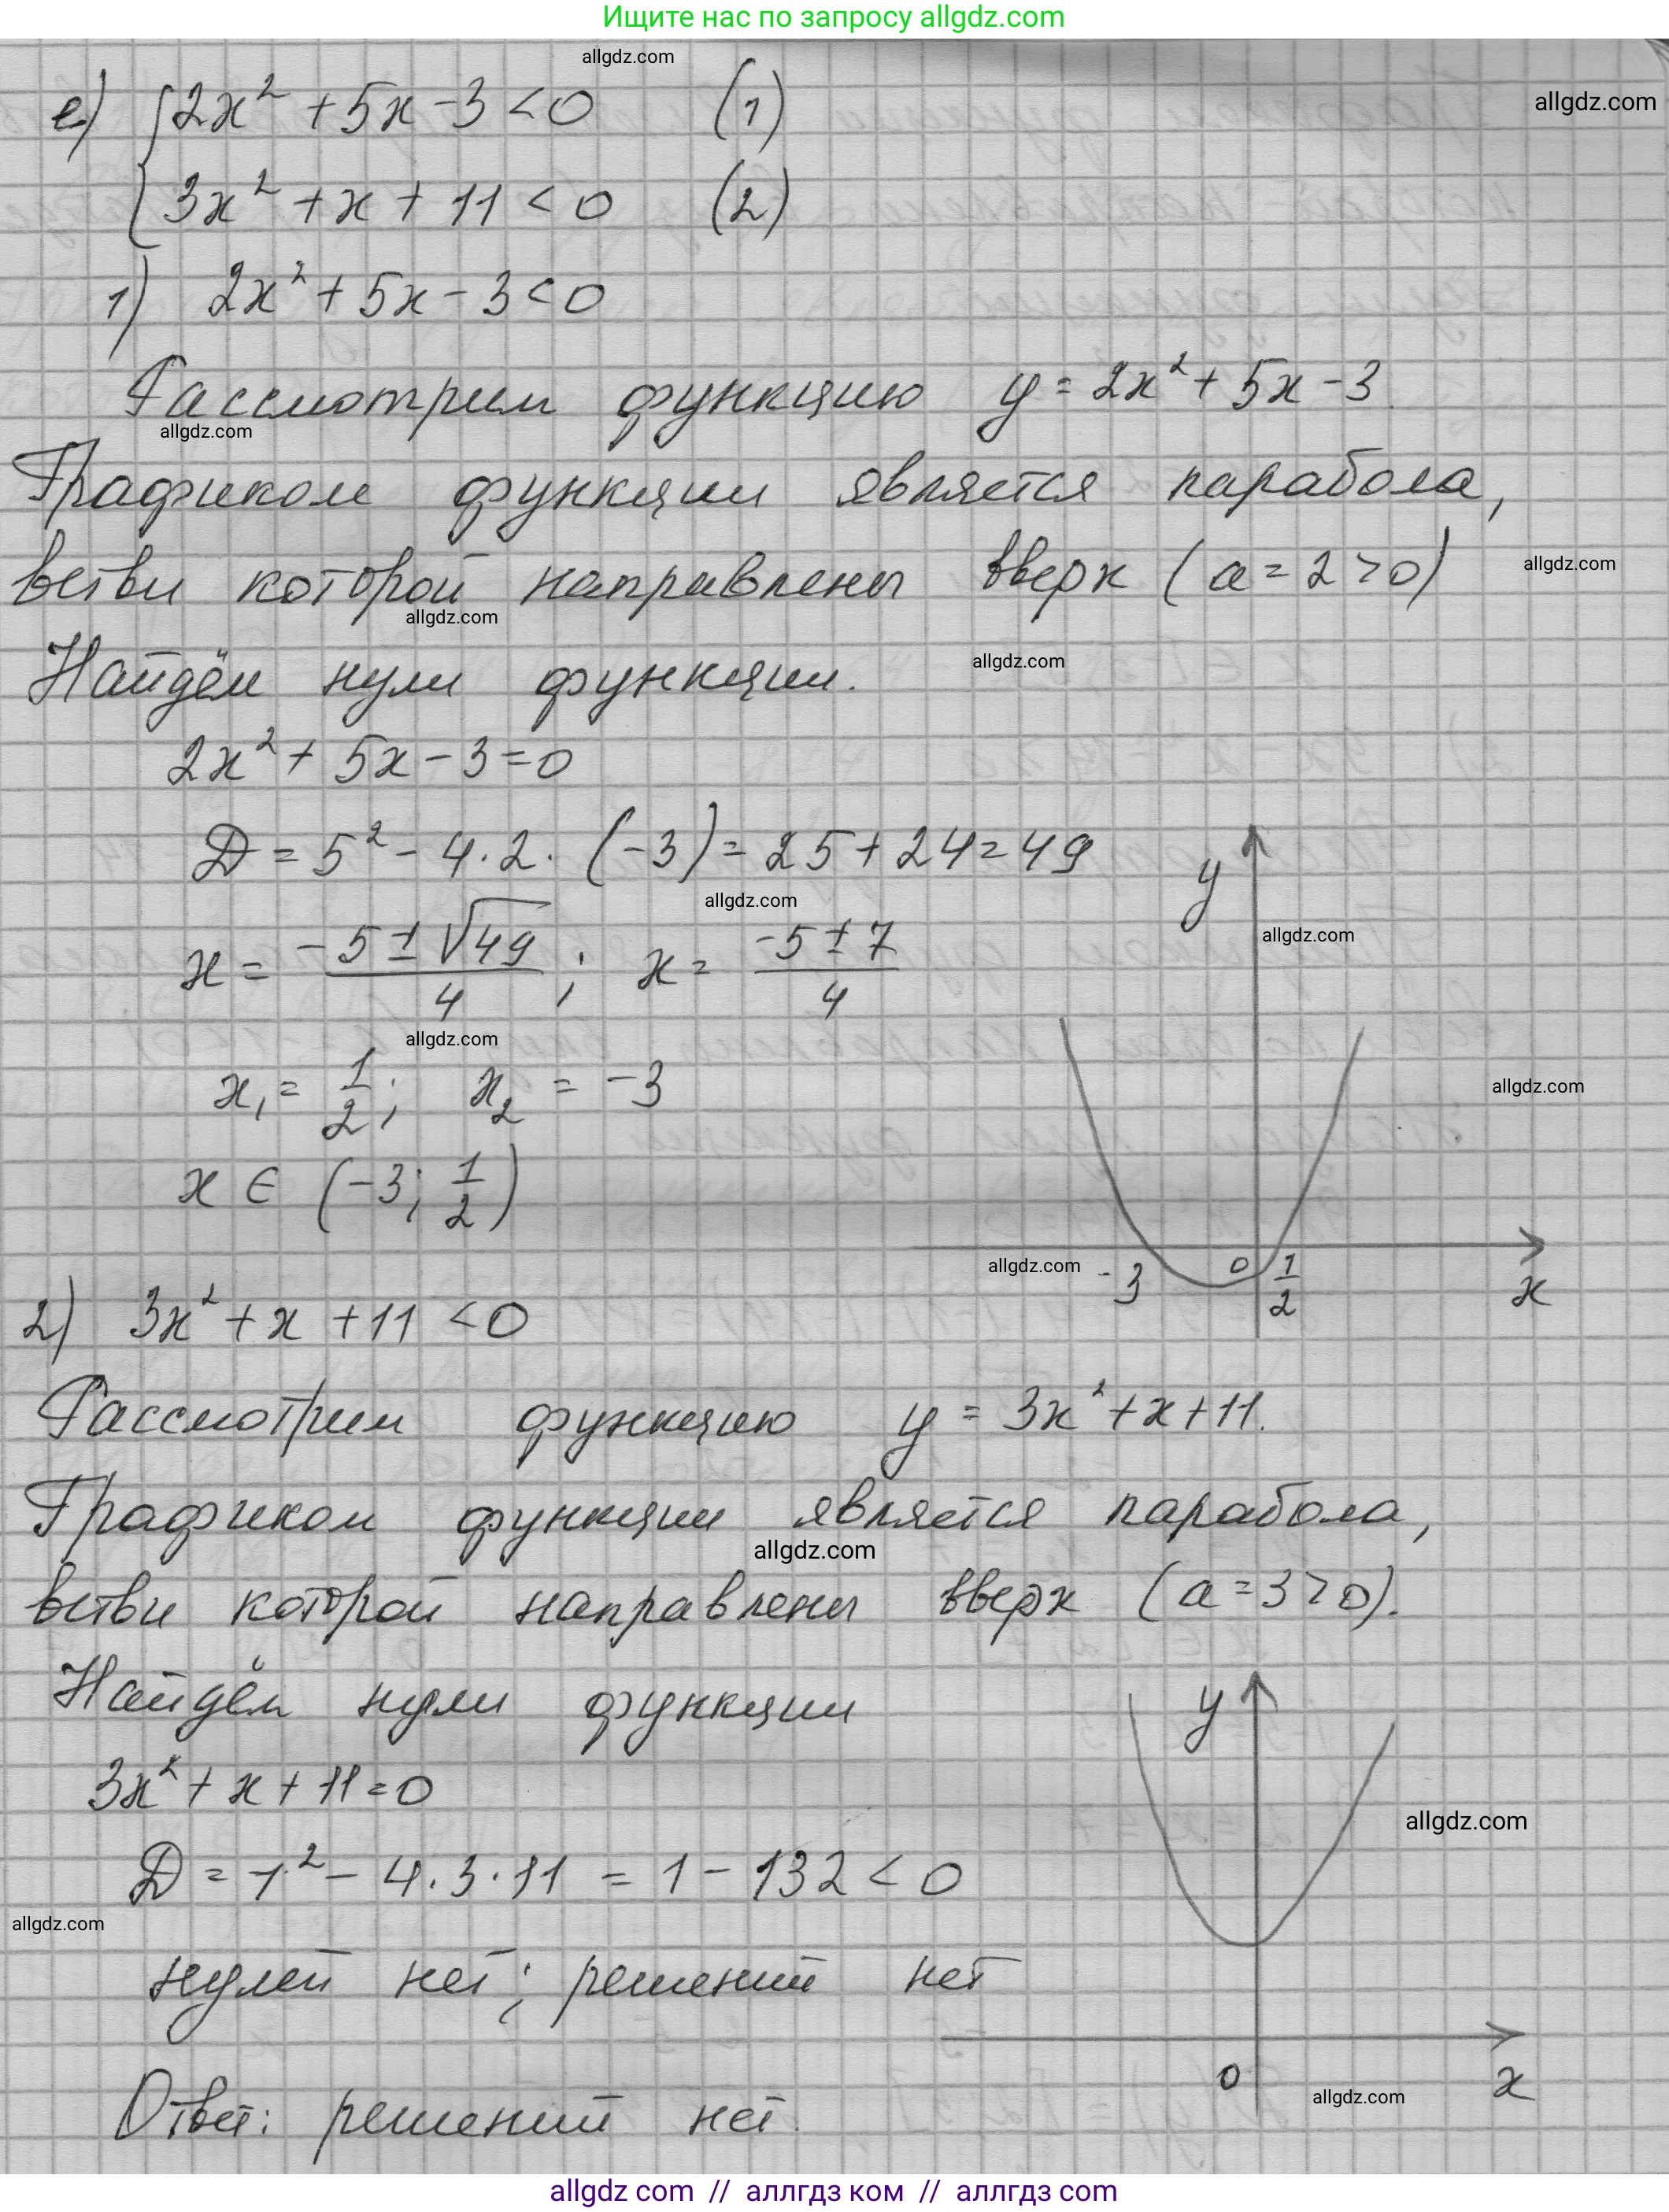 Ищите нас по запросу allgdz.com
allgdz.com
е) { 2x² + 5x - 3 < 0 (1)
allgdz.com
3x² + x + 11 < 0 (2)
1) 2x² + 5x - 3 < 0
Рассмотрим функцию y = 2x² + 5x - 3.
allgdz.com
Графиком функции является парабола,
ветви которой направлены вверх (a = 2 > 0)
allgdz.com
allgdz.com
Найдём нули функции.
allgdz.com
2x² + 5x - 3 = 0
D = 5² - 4 · 2 · (-3) = 25 + 24 = 49
y
allgdz.com
allgdz.com
x = (-5 ± √49)/4 ; x = (-5 ± 7)/4
allgdz.com
x₁ = 1/2 ; x₂ = -3
allgdz.com
x ∈ (-3; 1/2)
allgdz.com -3 0 1/2 x
2) 3x² + x + 11 < 0
Рассмотрим функцию y = 3x² + x + 11.
Графиком функции является парабола,
allgdz.com
ветви которой направлены вверх (a = 3 > 0).
Найдём нули функции
y
3x² + x + 11 = 0
allgdz.com
D = 1² - 4 · 3 · 11 = 1 - 132 < 0
allgdz.com
нулей нет; решений нет
0 x
allgdz.com
Ответ: решений нет.
allgdz com // аллгдз ком // аллгдз com